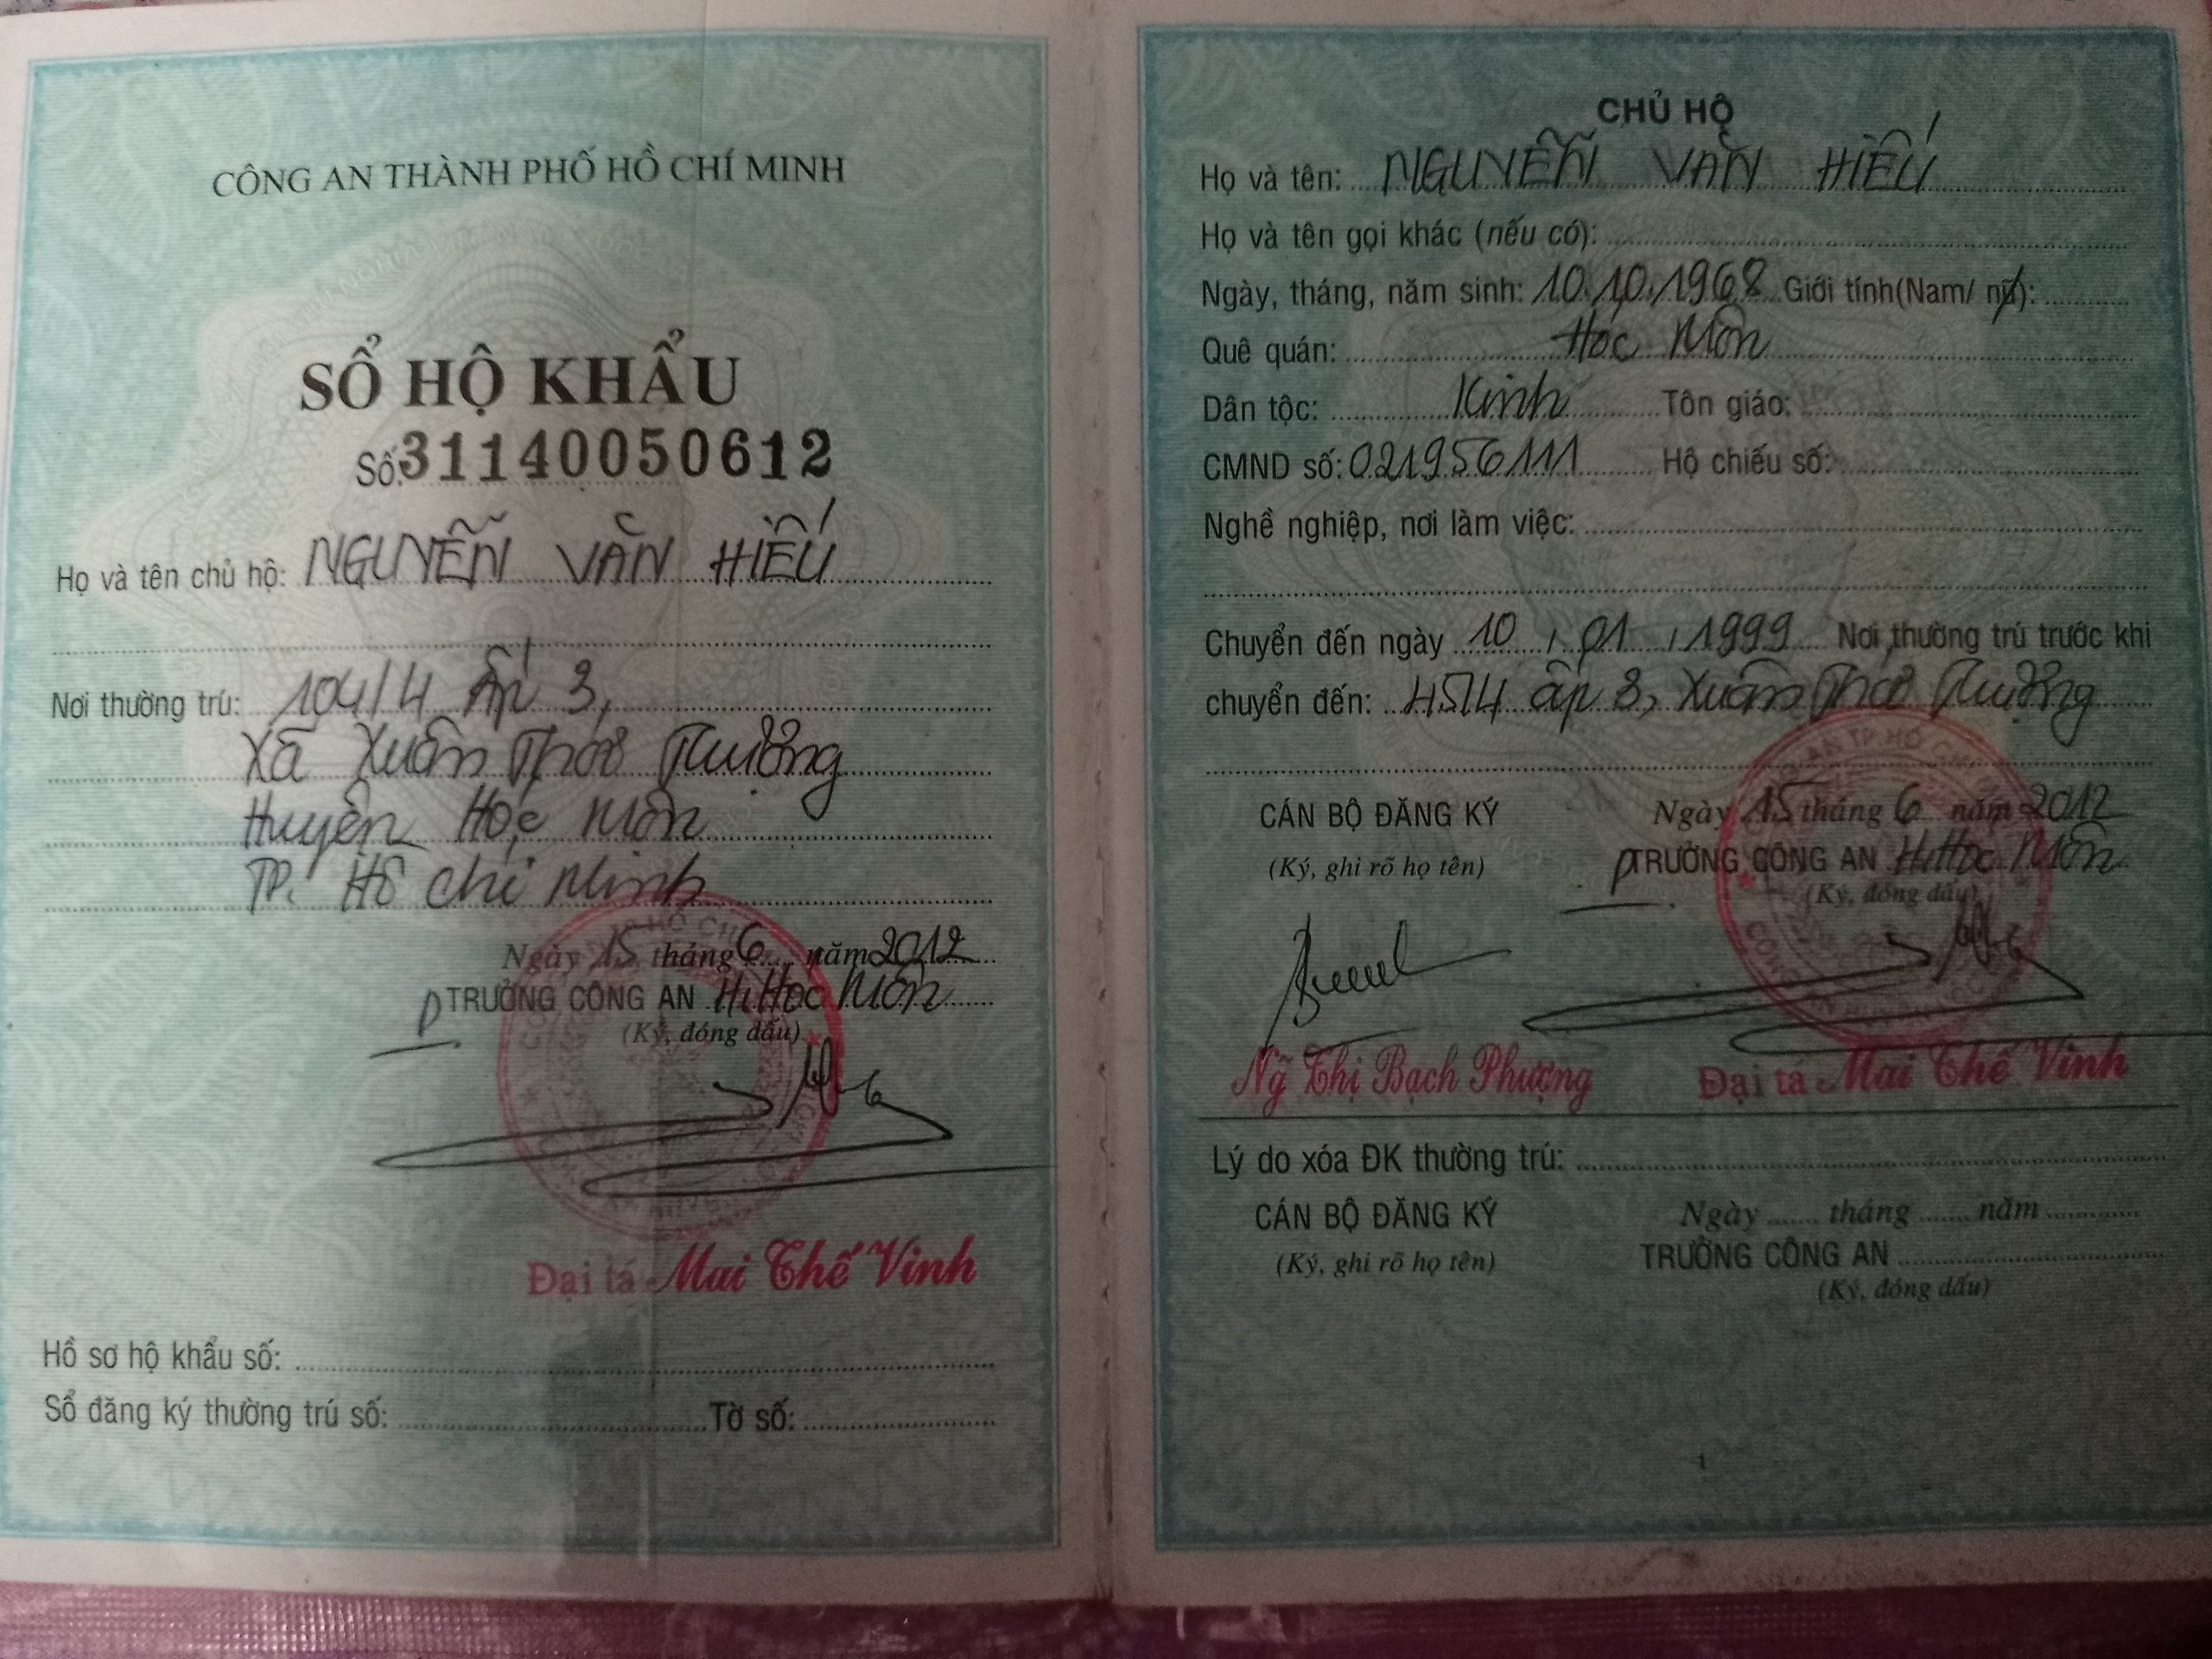 CÔNG AN THÀNH PHỐ HỒ CHÍ MINH
SỔ HỘ KHẨU
Số: 31140050612
Họ và tên chủ hộ: NGUYỄN VĂN HIẾU
Nơi thường trú: 104/4 Ấp 3,
Xã Xuân Thới Thượng
Huyện Hóc Môn
TP. Hồ Chí Minh
Ngày 15 tháng 6 năm 2012
P TRƯỞNG CÔNG AN H. Hóc Môn
(Ký, đóng dấu)
Đại tá Mai Thế Vinh
Hồ sơ hộ khẩu số:
Sổ đăng ký thường trú số: Tờ số:
CHỦ HỘ
Họ và tên: NGUYỄN VĂN HIẾU
Họ và tên gọi khác (nếu có):
Ngày, tháng, năm sinh: 10.10.1968 Giới tính(Nam/ nữ):
Quê quán: Hóc Môn
Dân tộc: Kinh Tôn giáo:
CMND số: 021956111 Hộ chiếu số:
Nghề nghiệp, nơi làm việc:
Chuyển đến ngày 10 / 01 / 1999 Nơi thường trú trước khi
chuyển đến: ấp 3, Xuân Thới Thượng
CÁN BỘ ĐĂNG KÝ
(Ký, ghi rõ họ tên)
Ngày 15 tháng 6 năm 2012
P TRƯỞNG CÔNG AN H. Hóc Môn
(Ký, đóng dấu)
Ng̃ Thị Bạch Phượng
Đại tá Mai Thế Vinh
Lý do xóa ĐK thường trú:
CÁN BỘ ĐĂNG KÝ
(Ký, ghi rõ họ tên)
Ngày tháng năm
TRƯỞNG CÔNG AN
(Ký, đóng dấu)
1